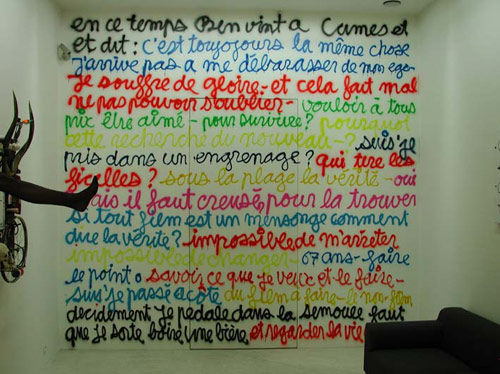 en ce temps Ben vint a Cannes et
et dit : c'est toujojours la même chose
j'arrive pas a me débarasser de mon ego-
je souffre de gloire - et cela fait mal
ne pas pouvoir s'oublier - vouloir à tous
prix être aimé - pour survivre? pourquoi
cette recherche du nouveau - ? suis-je
pris dans un engrenage? qui tire les
ficelles? sous la plage la vérité - oui
mais il faut creusé, pour la trouver
si tout film est un mensonge comment
dire la vérité? impossible de m'arrêter
impossible de changer - 67 ans - faire
le point o savoir ce que je veux et le faire -
suis je passé a côté du film a faire - le non-film
decidement je pedale dans la semoule faut
que je sorte boire une bière et regarder la vie